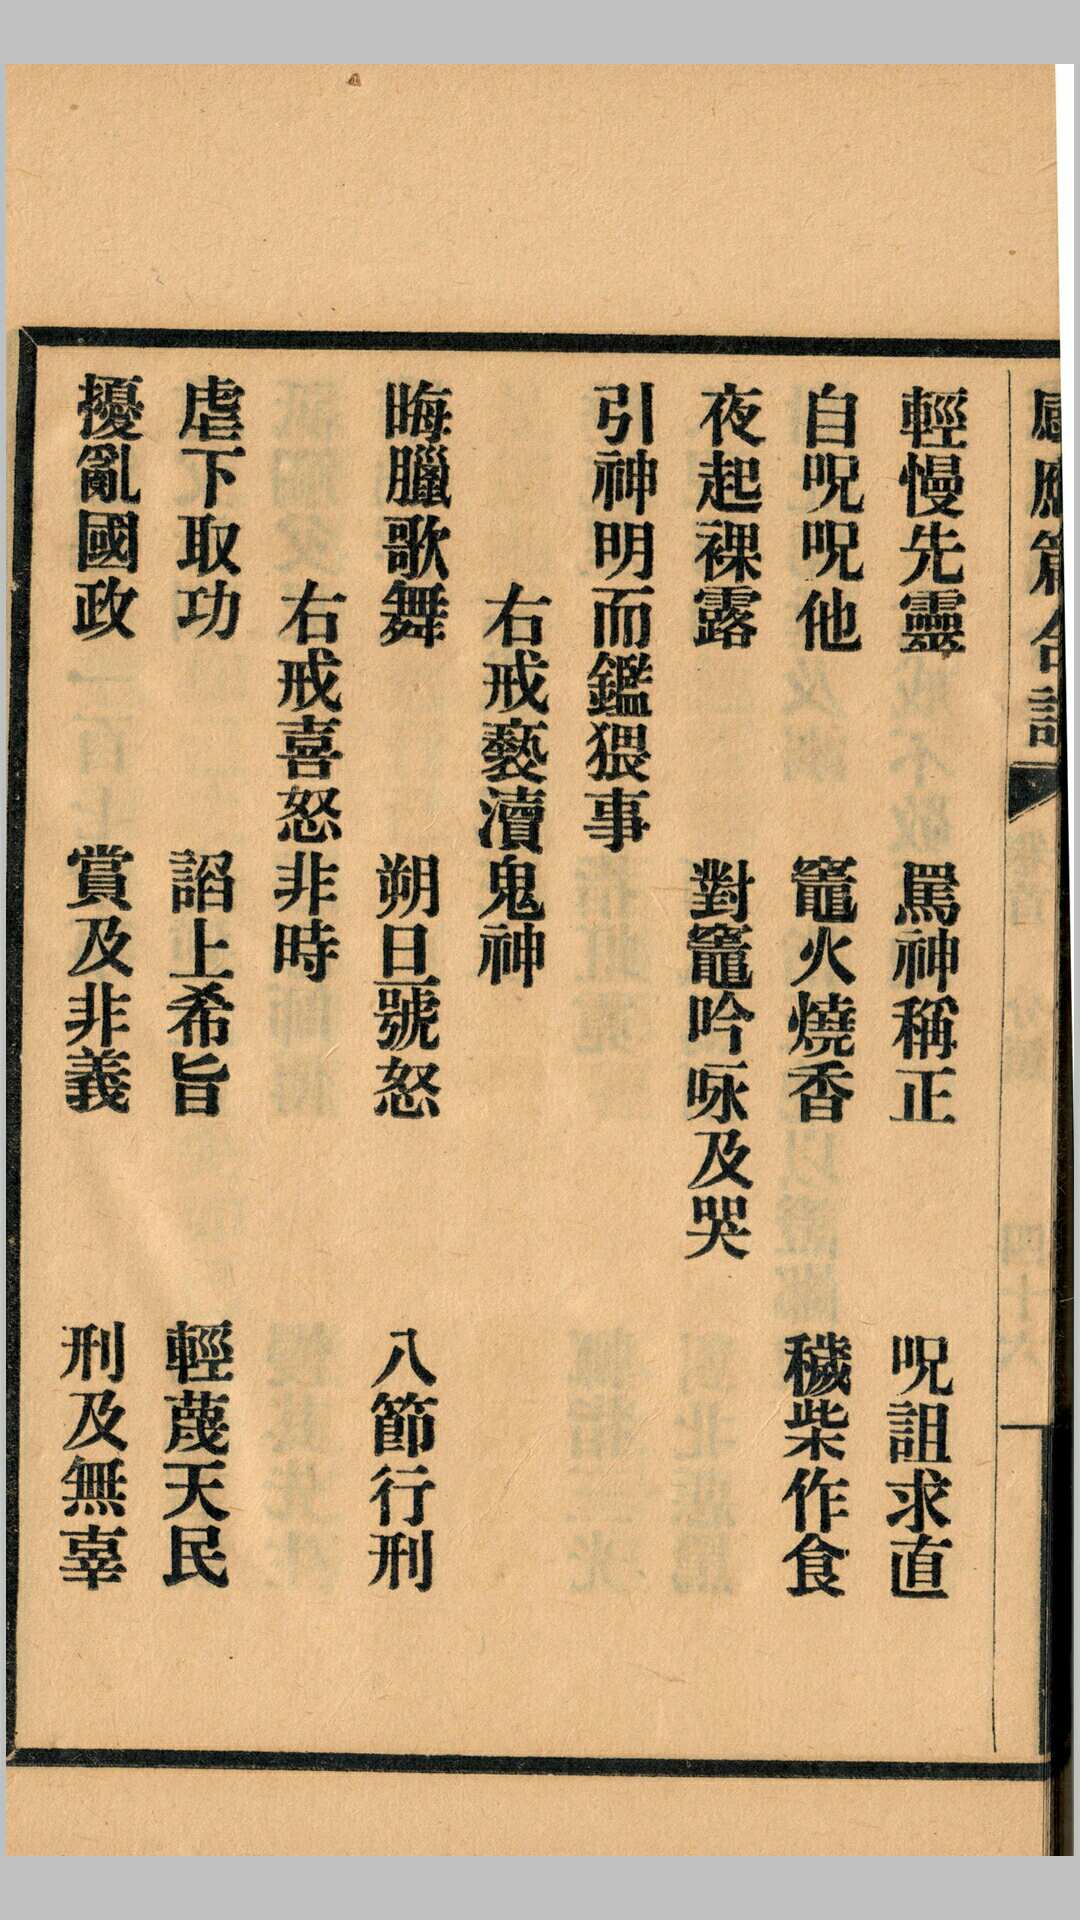 感應篇合註
卷首 分類 四十六
輕慢先靈 罵神稱正 呪詛求直
自呪呪他 竈火燒香 穢柴作食
夜起裸露 對竈吟咏及哭
引神明而鑑猥事
右戒褻瀆鬼神
晦臘歌舞 朔旦號怒 八節行刑
右戒喜怒非時
虐下取功 諂上希旨 輕蔑天民
擾亂國政 賞及非義 刑及無辜